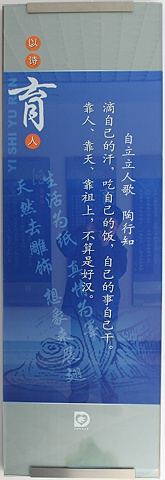 以诗
育
人
YI SHI YU REN
自立立人歌　陶行知
滴自己的汗，吃自己的饭，自己的事自己干。
靠人、靠天、靠祖上，不算是好汉。
生活为纸　真情为墨
天然去雕饰　想象来展翅